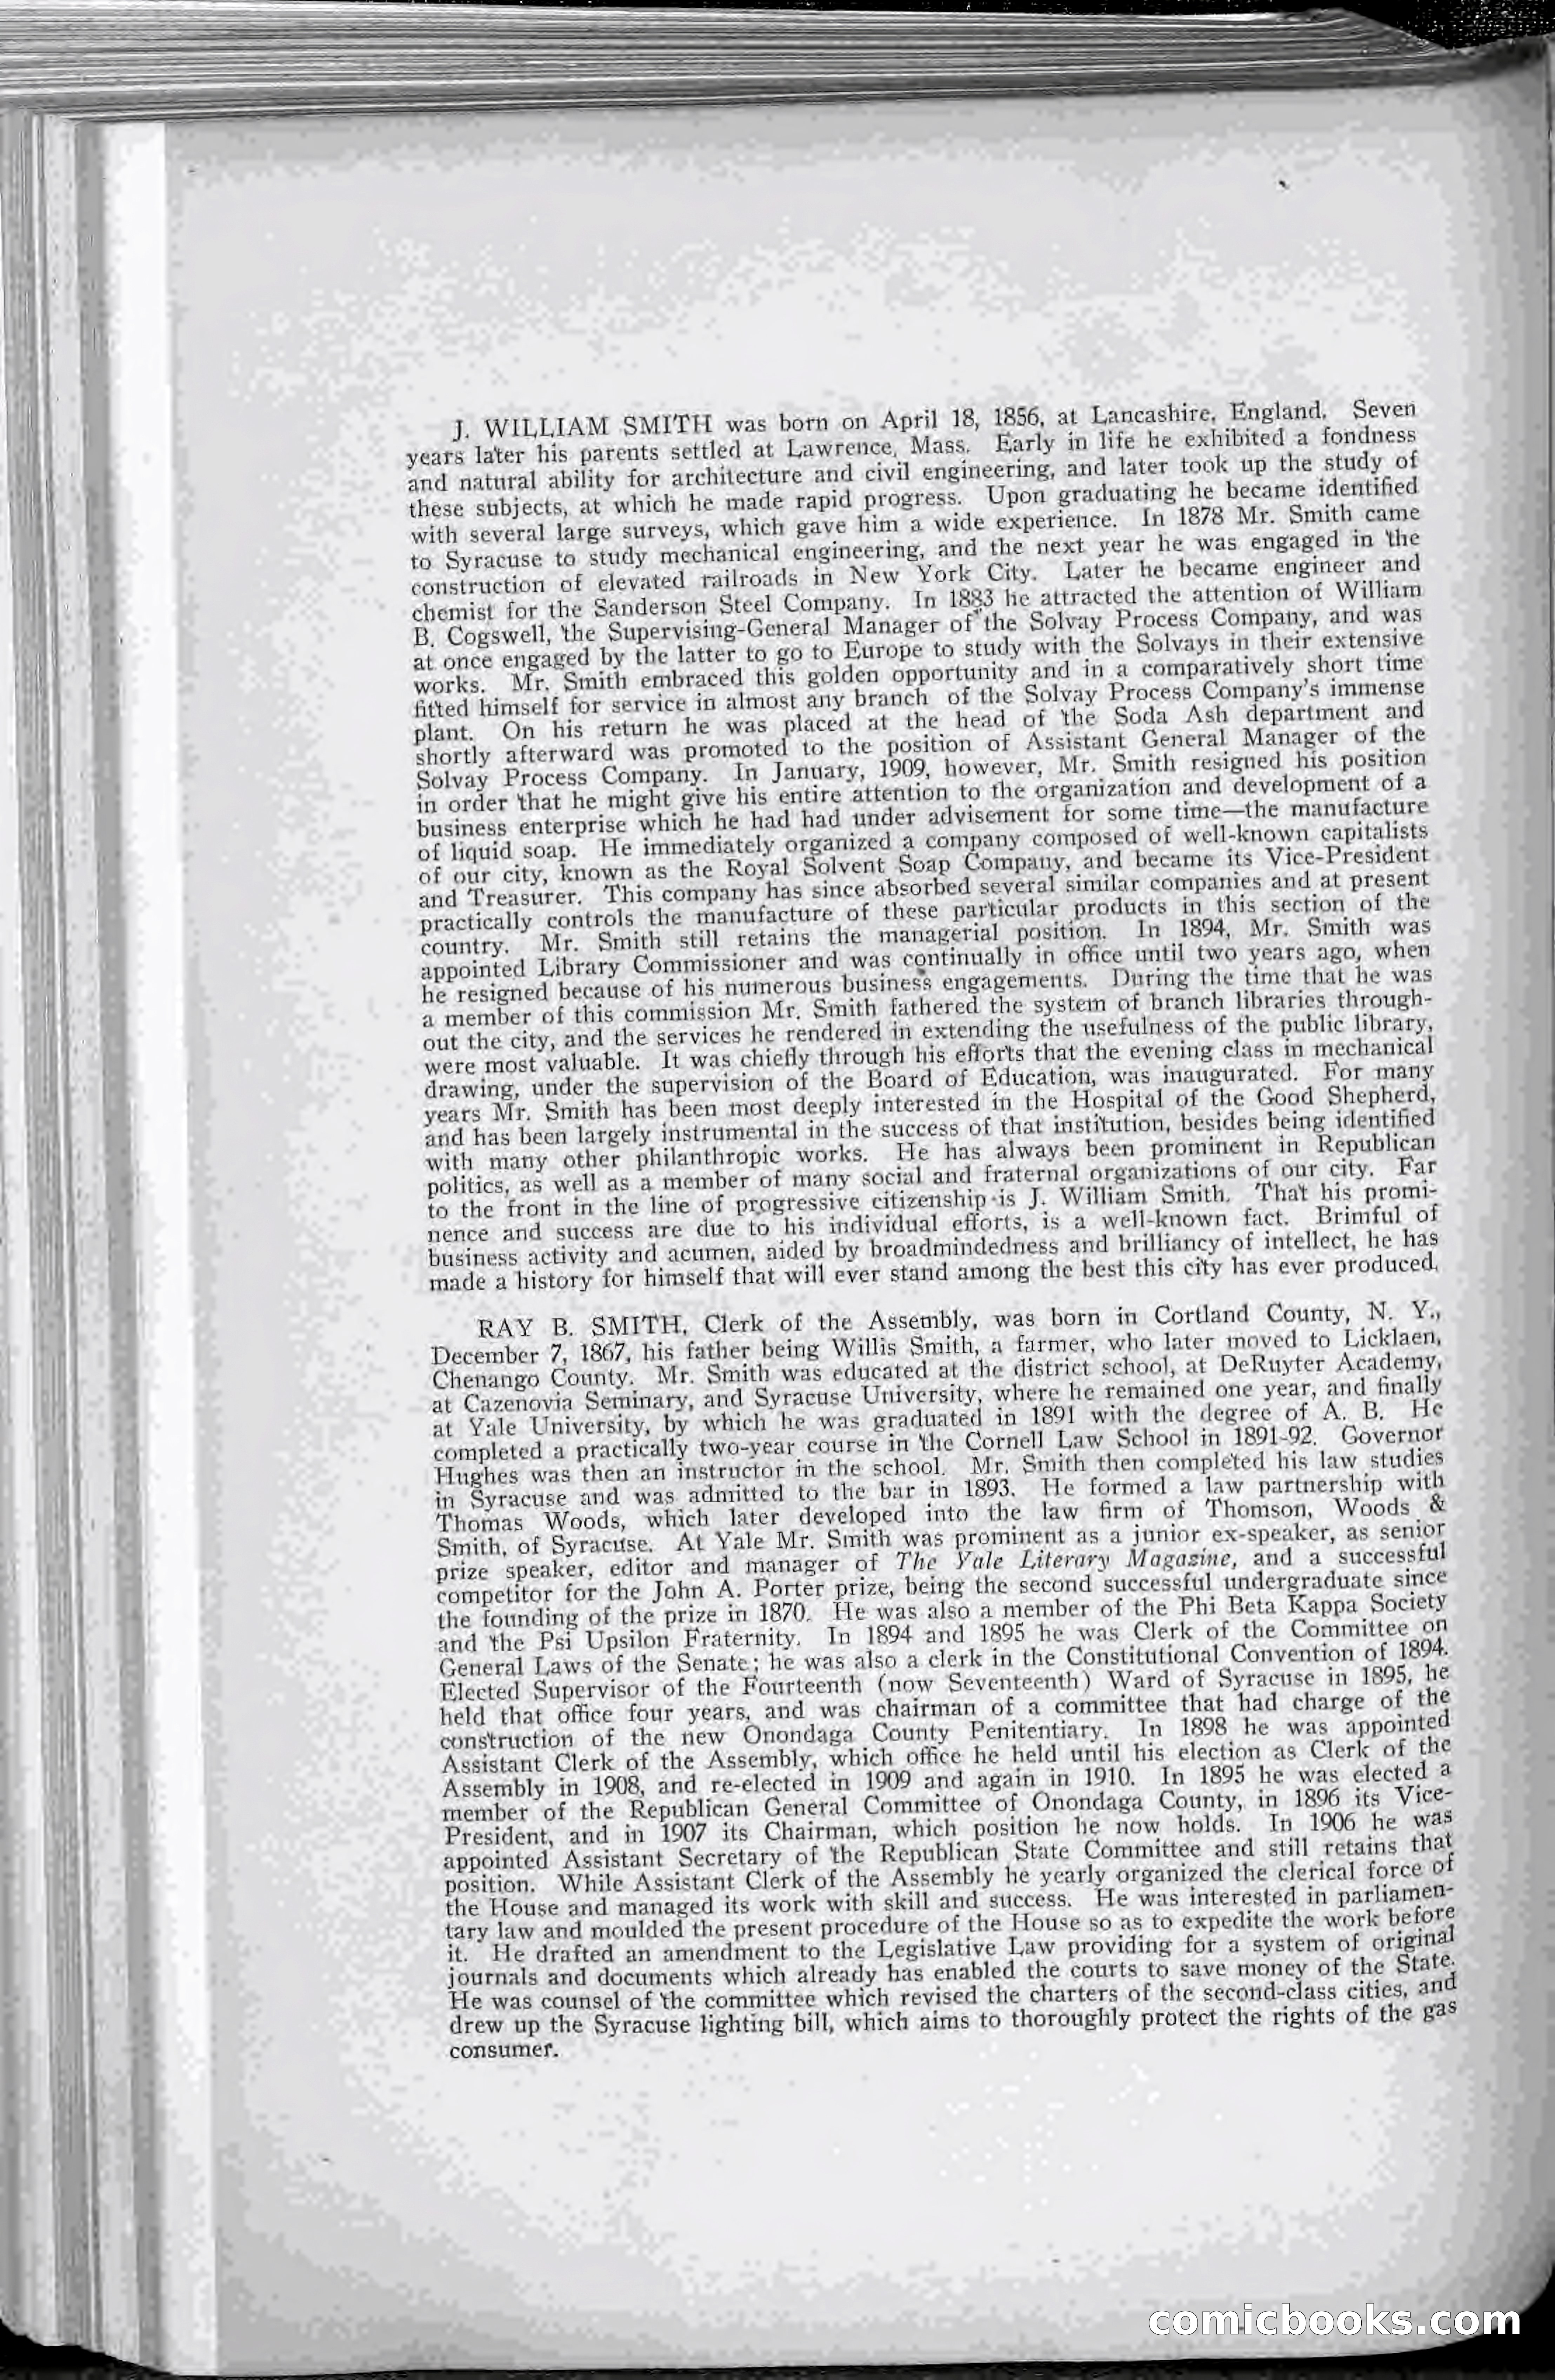 J. WILLIAM SMITH was born on April 18, 1856, at Lancashire, England. Seven
years later his parents settled at Lawrence, Mass. Early in life he exhibited a fondness
and natural ability for architecture and civil engineering, and later took up the study of
these subjects, at which he made rapid progress. Upon graduating he became identified
with several large surveys, which gave him a wide experience. In 1878 Mr. Smith came
to Syracuse to study mechanical engineering, and the next year he was engaged in the
construction of elevated railroads in New York City. Later he became engineer and
chemist for the Sanderson Steel Company. In 1883 he attracted the attention of William
B. Cogswell, the Supervising-General Manager of the Solvay Process Company, and was
at once engaged by the latter to go to Europe to study with the Solvays in their extensive
works. Mr. Smith embraced this golden opportunity and in a comparatively short time
fitted himself for service in almost any branch of the Solvay Process Company's immense
plant. On his return he was placed at the head of the Soda Ash department and
shortly afterward was promoted to the position of Assistant General Manager of the
Solvay Process Company. In January, 1909, however, Mr. Smith resigned his position
in order that he might give his entire attention to the organization and development of a
business enterprise which he had had under advisement for some time—the manufacture
of liquid soap. He immediately organized a company composed of well-known capitalists
of our city, known as the Royal Solvent Soap Company, and became its Vice-President
and Treasurer. This company has since absorbed several similar companies and at present
practically controls the manufacture of these particular products in this section of the
country. Mr. Smith still retains the managerial position. In 1894, Mr. Smith was
appointed Library Commissioner and was continually in office until two years ago, when
he resigned because of his numerous business engagements. During the time that he was
a member of this commission Mr. Smith fathered the system of branch libraries through-
out the city, and the services he rendered in extending the usefulness of the public library,
were most valuable. It was chiefly through his efforts that the evening class in mechanical
drawing, under the supervision of the Board of Education, was inaugurated. For many
years Mr. Smith has been most deeply interested in the Hospital of the Good Shepherd,
and has been largely instrumental in the success of that institution, besides being identified
with many other philanthropic works. He has always been prominent in Republican
politics, as well as a member of many social and fraternal organizations of our city. Far
to the front in the line of progressive citizenship is J. William Smith. That his promi-
nence and success are due to his individual efforts, is a well-known fact. Brimful of
business activity and acumen, aided by broadmindedness and brilliancy of intellect, he has
made a history for himself that will ever stand among the best this city has ever produced.
RAY B. SMITH, Clerk of the Assembly, was born in Cortland County, N. Y.,
December 7, 1867, his father being Willis Smith, a farmer, who later moved to Licklaen,
Chenango County. Mr. Smith was educated at the district school, at DeRuyter Academy,
at Cazenovia Seminary, and Syracuse University, where he remained one year, and finally
at Yale University, by which he was graduated in 1891 with the degree of A. B. He
completed a practically two-year course in the Cornell Law School in 1891-92. Governor
Hughes was then an instructor in the school. Mr. Smith then completed his law studies
in Syracuse and was admitted to the bar in 1893. He formed a law partnership with
Thomas Woods, which later developed into the law firm of Thomson, Woods &
Smith, of Syracuse. At Yale Mr. Smith was prominent as a junior ex-speaker, as senior
prize speaker, editor and manager of The Yale Literary Magazine, and a successful
competitor for the John A. Porter prize, being the second successful undergraduate since
the founding of the prize in 1870. He was also a member of the Phi Beta Kappa Society
and the Psi Upsilon Fraternity. In 1894 and 1895 he was Clerk of the Committee on
General Laws of the Senate; he was also a clerk in the Constitutional Convention of 1894.
Elected Supervisor of the Fourteenth (now Seventeenth) Ward of Syracuse in 1895, he
held that office four years, and was chairman of a committee that had charge of the
construction of the new Onondaga County Penitentiary. In 1898 he was appointed
Assistant Clerk of the Assembly, which office he held until his election as Clerk of the
Assembly in 1908, and re-elected in 1909 and again in 1910. In 1895 he was elected a
member of the Republican General Committee of Onondaga County, in 1896 its Vice-
President, and in 1907 its Chairman, which position he now holds. In 1906 he was
appointed Assistant Secretary of the Republican State Committee and still retains that
position. While Assistant Clerk of the Assembly he yearly organized the clerical force of
the House and managed its work with skill and success. He was interested in parliamen-
tary law and moulded the present procedure of the House so as to expedite the work before
it. He drafted an amendment to the Legislative Law providing for a system of original
journals and documents which already has enabled the courts to save money of the State.
He was counsel of the committee which revised the charters of the second-class cities, and
drew up the Syracuse lighting bill, which aims to thoroughly protect the rights of the gas
consumer.
comicbooks.com